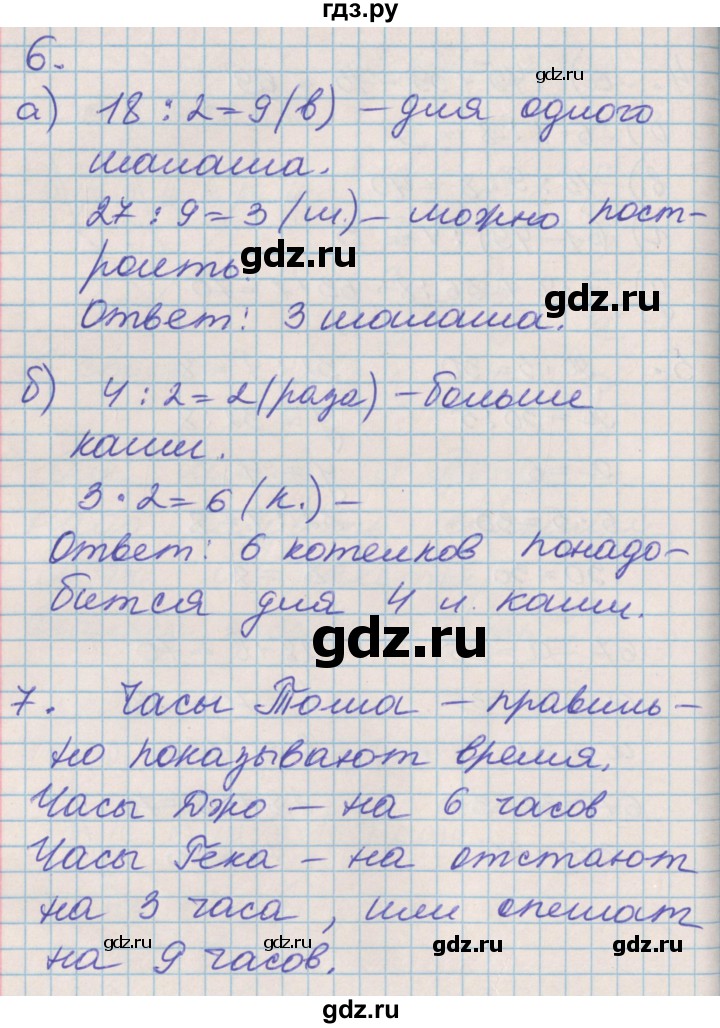 гдз.ру
6.
gdz.ru
а) 18 : 2 = 9 (в) – для одного
шалаша.
27 : 9 = 3 (ш.) – можно пост-
роить.
gdz.ru
gdz.ru
Ответ: 3 шалаша.
б) 4 : 2 = 2 (раза) – больше
каши.
3 · 2 = 6 (к.) –
Ответ: 6 котелков понадо-
бится для 4 л. каши.
gdz.ru
7. Часы Тома – правиль-
но показывают время.
Часы Джо – на 6 часов
Часы Гека – на отстают
на 3 часа, или спешат
на 9 часов.
gdz.ru
gdz.ru
gdz.ru
gdz.ru